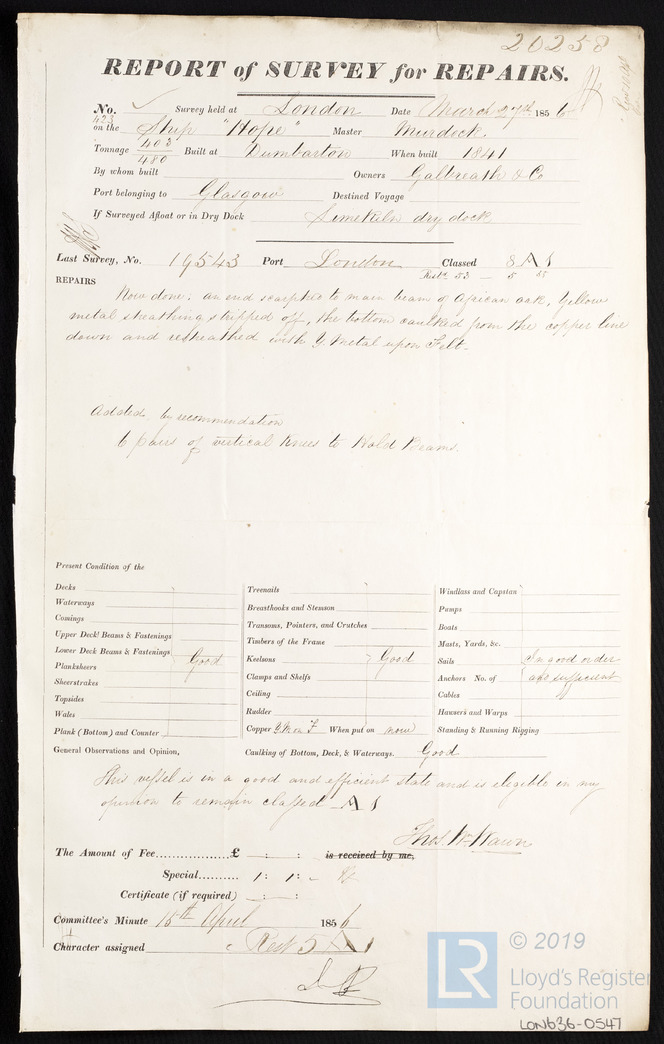 20258
REPORT of SURVEY for REPAIRS.
No. 423 Survey held at London Date March 27th 1856
on the Ship "Hope" Master Murdock.
Tonnage 403/480 Built at Dumbarton When built 1841
By whom built Owners Galbreath & Co
Port belonging to Glasgow Destined Voyage
If Surveyed Afloat or in Dry Dock Limekiln dry dock
Last Survey, No. 19543 Port London Classed 8 A 1
Rest. 53 — 5 55
REPAIRS
Now done: an end scarphed to main beam of African oak, Yellow
metal sheathing stripped off, the bottom caulked from the copper line
down and resheathed with Y. Metal upon Felt.
Added by recommendation
6 pairs of vertical Knees to Hold Beams.
Present Condition of the
Decks
Waterways
Comings
Upper Deck Beams & Fastenings
Lower Deck Beams & Fastenings Good
Planksheers
Sheerstrakes
Topsides
Wales
Plank (Bottom) and Counter
Treenails
Breasthooks and Stemson
Transoms, Pointers, and Crutches
Timbers of the Frame
Keelsons Good
Clamps and Shelfs
Ceiling
Rudder
Copper Y.M on F When put on now
Windlass and Capstan
Pumps
Boats
Masts, Yards, &c.
Sails In good order
Anchors No. of and sufficient
Cables
Hawsers and Warps
Standing & Running Rigging
General Observations and Opinion, Caulking of Bottom, Deck, & Waterways. Good
This vessel is in a good and efficient state and is eligible in my
opinion to remain classed A 1
Thos. W. Wawn
The Amount of Fee................£ — : — : is received by me,
Special.......... 1 : 1 : –
Certificate (if required) — : — :
Committee's Minute 15th April 1856
Character assigned Rest 5 A 1
LR
© 2019
Lloyd's Register
Foundation
LON636-0547